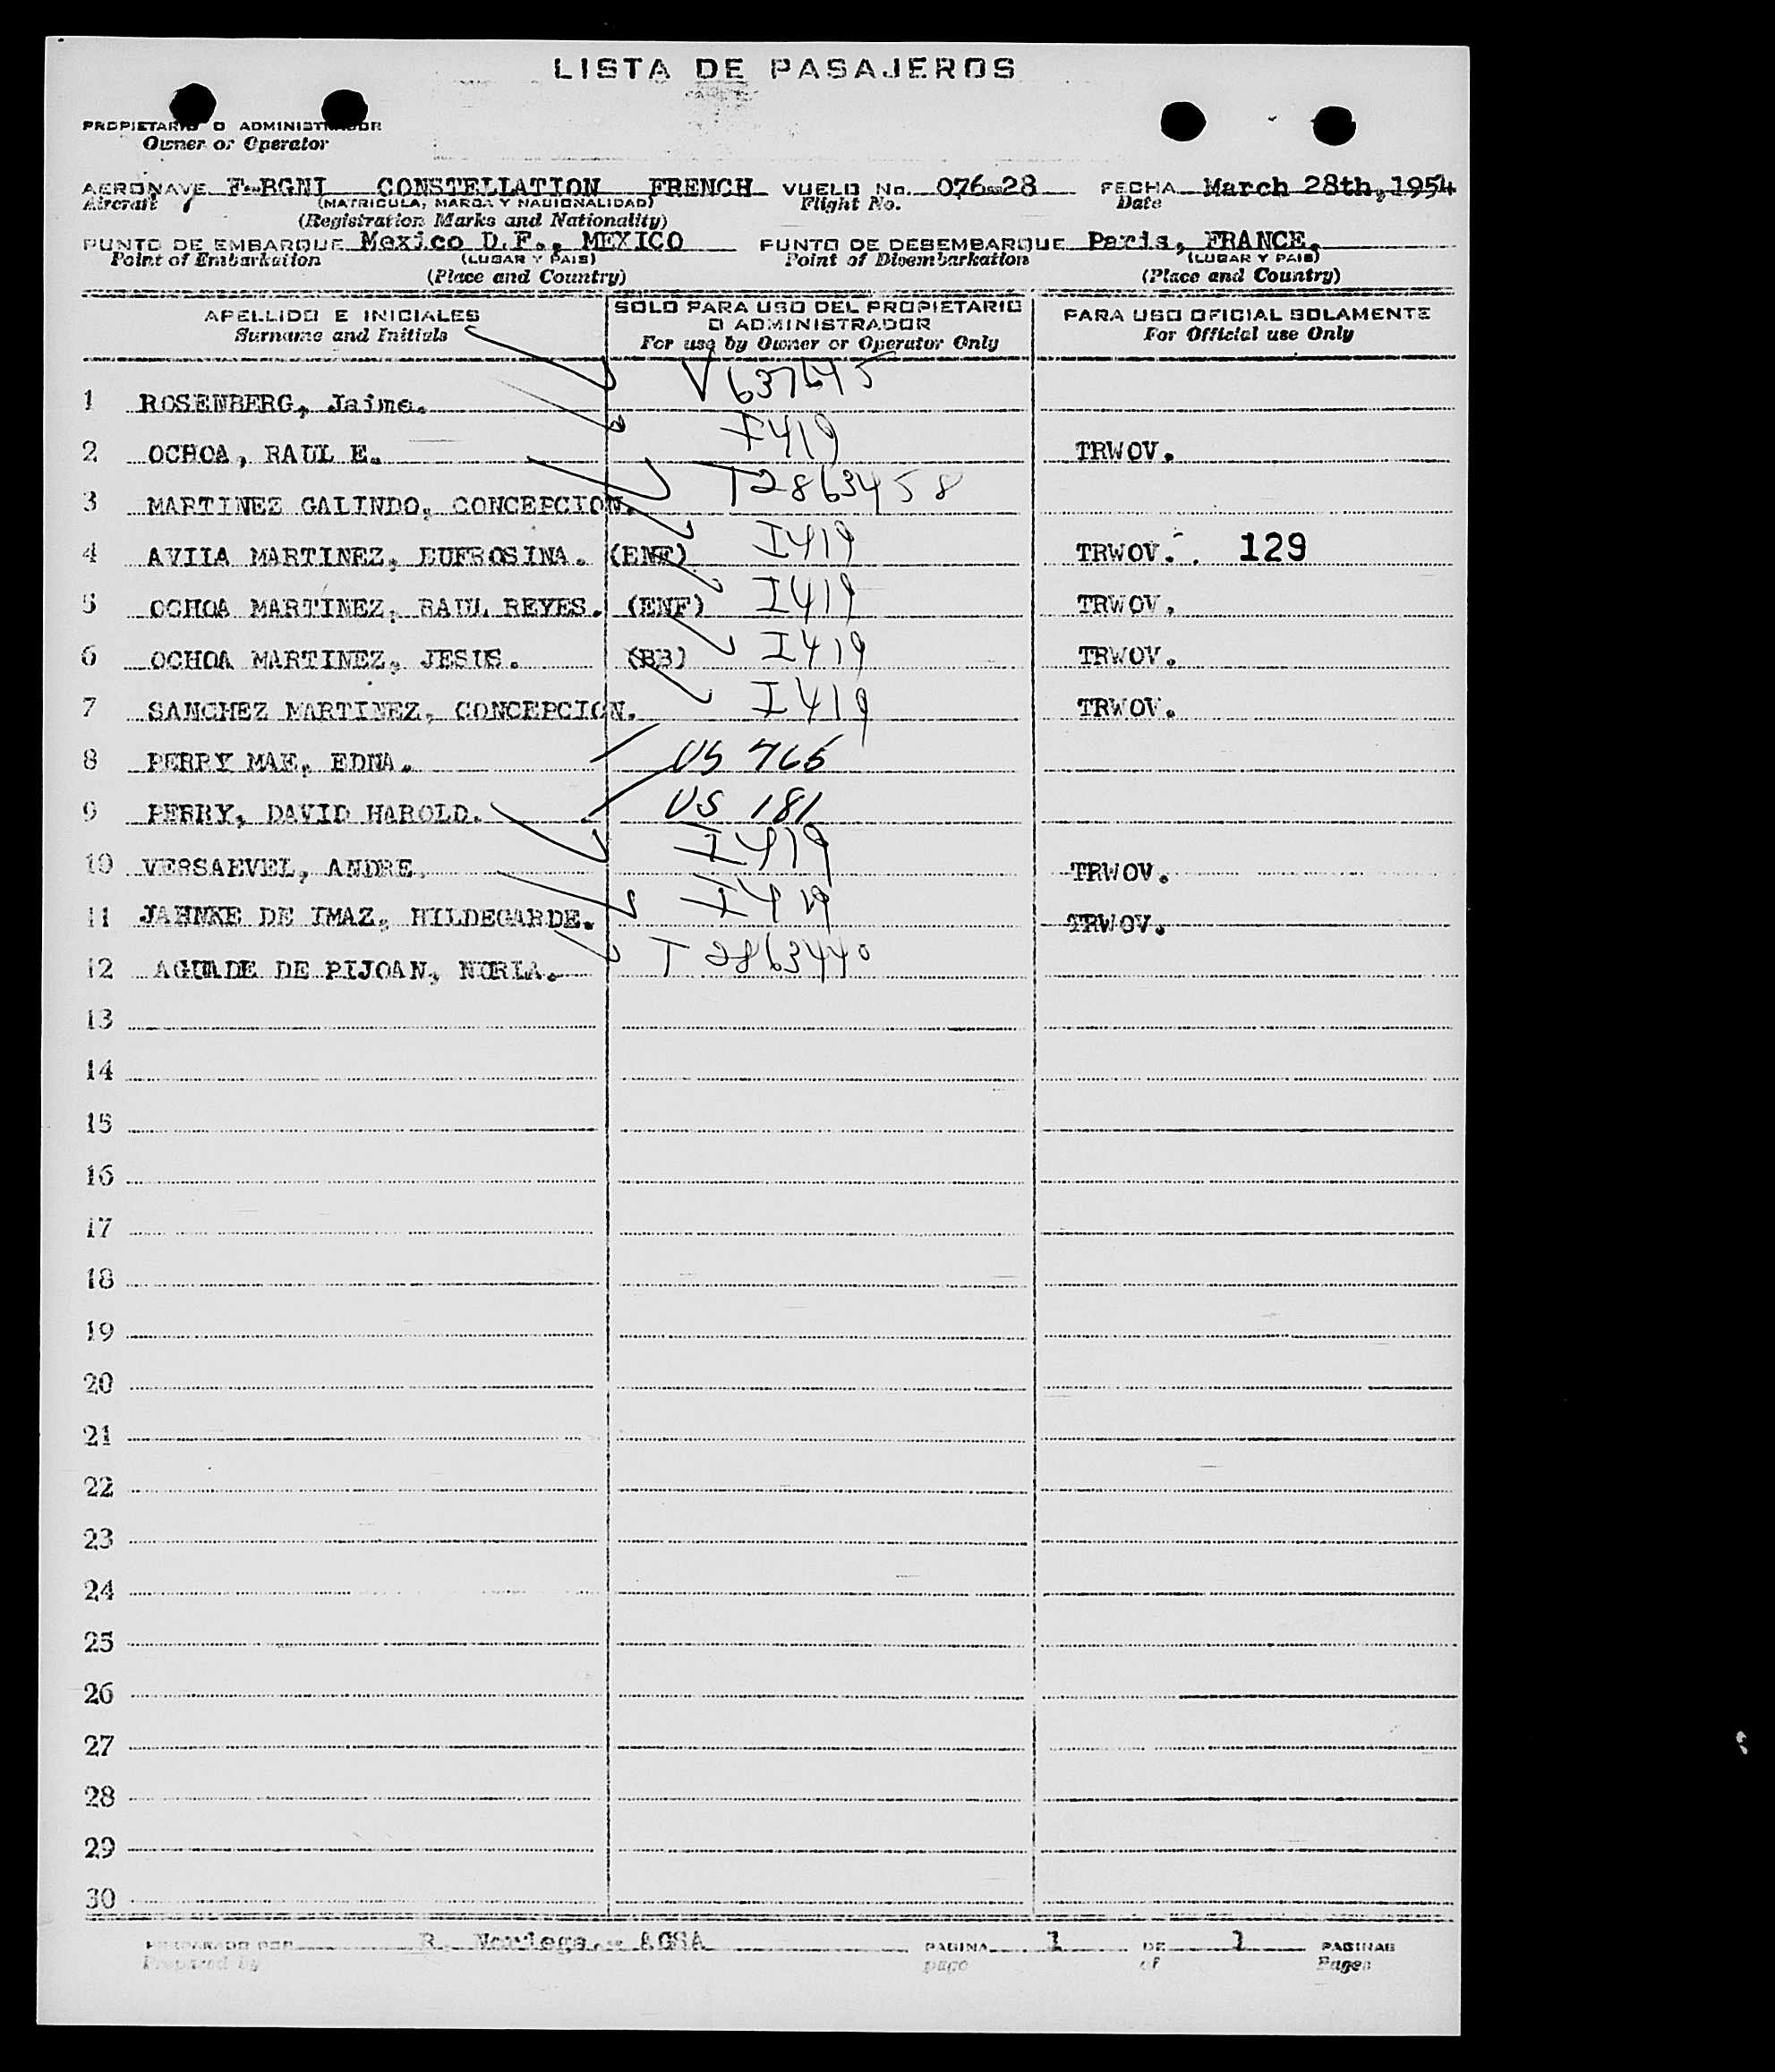 LISTA DE PASAJEROS
PROPIETARIO O ADMINISTRADOR
Owner or Operator
AERONAVE F-BGNI CONSTELLATION FRENCH VUELO No. 076-28 FECHA March 28th, 1954
Aircraft (MATRICULA, MARCA Y NACIONALIDAD) Flight No. Date
(Registration Marks and Nationality)
PUNTO DE EMBARQUE Mexico D.F., MEXICO PUNTO DE DESEMBARQUE Paris, FRANCE.
Point of Embarkation (LUGAR Y PAIS) Point of Disembarkation (LUGAR Y PAIS)
(Place and Country) (Place and Country)
APELLIDO E INICIALES SOLO PARA USO DEL PROPIETARIO O ADMINISTRADOR PARA USO OFICIAL SOLAMENTE
Surname and Initials For use by Owner or Operator Only For Official use Only
1 ROSENBERG, Jaime. V637645
2 OCHOA, RAUL E. I419 TRWOV.
3 MARTINEZ GALINDO, CONCEPCION. T2863458
4 AVILA MARTINEZ, EUFROSINA. (ENF) I419 TRWOV. 129
5 OCHOA MARTINEZ, RAUL REYES. (ENF) I419 TRWOV.
6 OCHOA MARTINEZ, JESUS. (BB) I419 TRWOV.
7 SANCHEZ MARTINEZ, CONCEPCION. I419 TRWOV.
8 PERRY MAE, EDNA. US 765
9 PERRY, DAVID HAROLD. US 181
10 VERSAEVEL, ANDRE. I419 TRWOV.
11 JAHNKE DE IMAZ, HILDEGARDE. I419 TRWOV.
12 AGUADE DE PIJOAN, NURIA. T 2863440
13
14
15
16
17
18
19
20
21
22
23
24
25
26
27
28
29
30
PREPARADO POR R. Noriega.- AGSA PAGINA 1 DE 1 PAGINAS
Prepared by page of Pages